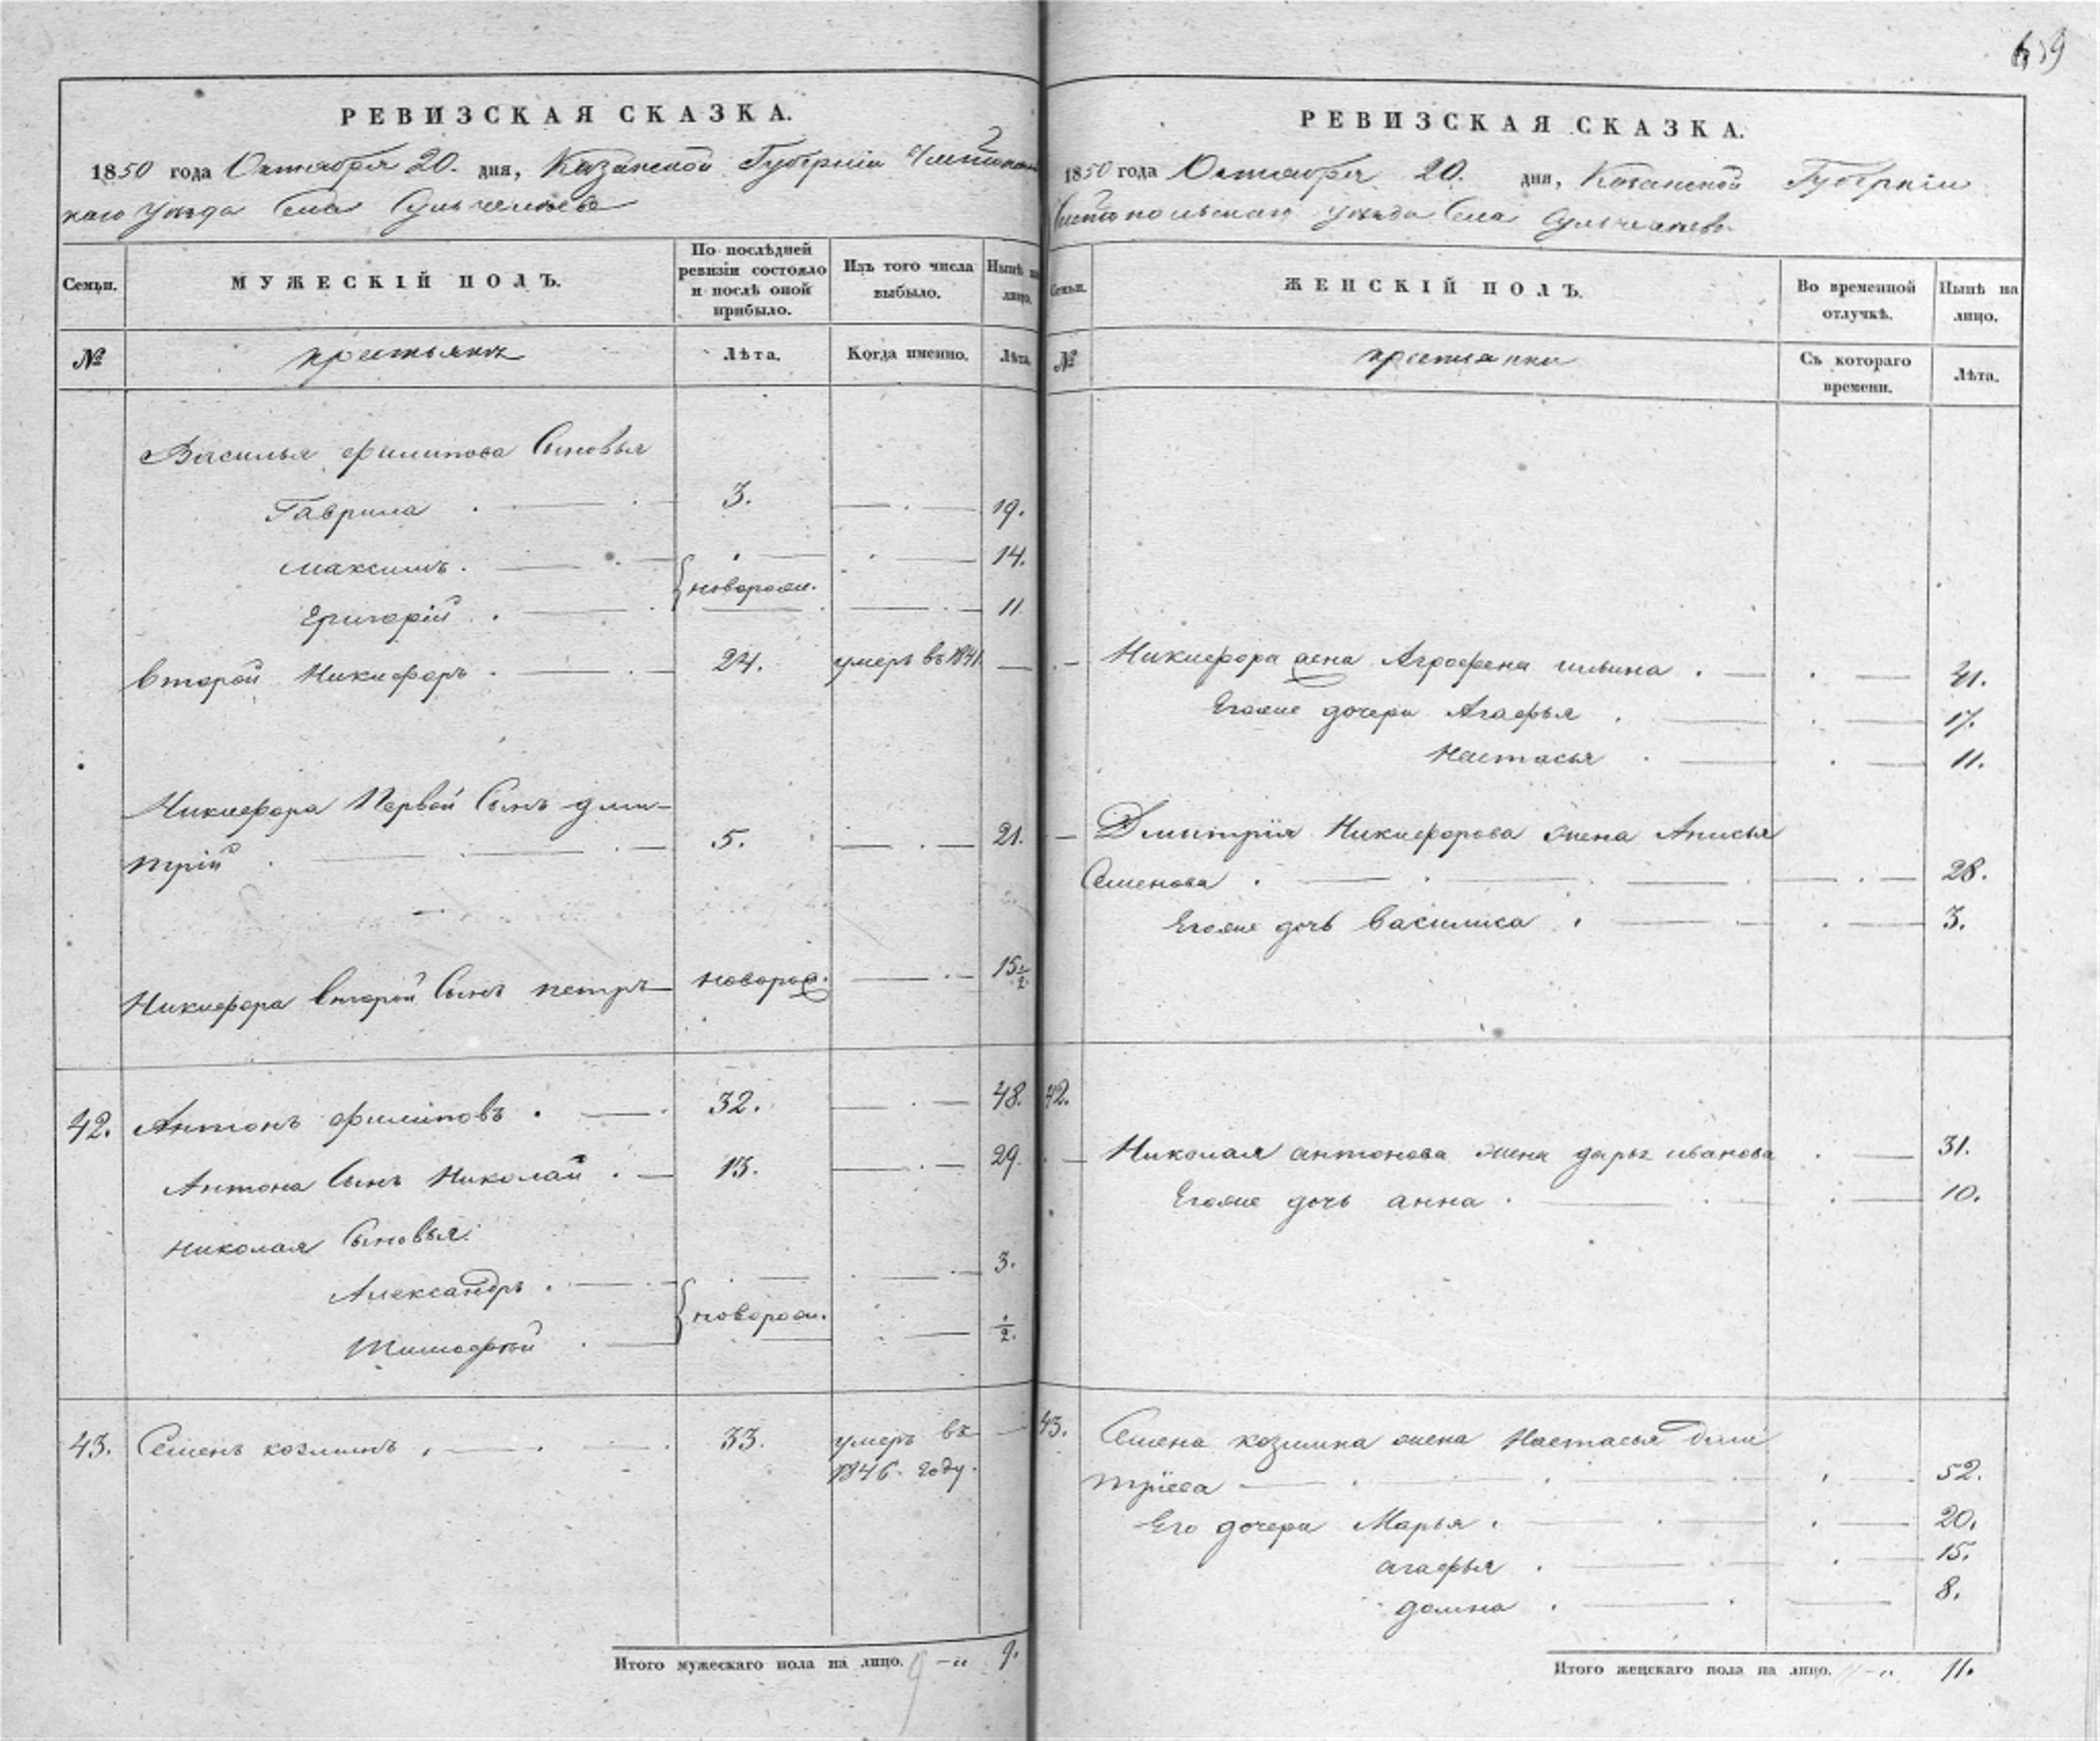 659
РЕВИЗСКАЯ СКАЗКА.
1850 года Октября 20. дня, Казанской Губернiи Чистополь
скаго уезда Села Сульчелеева
Семьи.
МУЖЕСКIЙ ПОЛЪ.
По послѣдней ревизiи состояло и послѣ оной прибыло.
Изъ того числа выбыло.
Нынѣ на лицо.
№
крестьянъ
Лѣта.
Когда именно.
Лѣта.
Василья филипова Сыновья
Гаврила 3. 19.
Максимъ. 14.
новорож.
Григорiй 11.
Второй Никифоръ 24. умеръ въ 1841
Никифора Первой Сынъ дми-
трiй 5. 21.
Никифора второй Сынъ петръ новорож. 15 1/2
42. Антонъ филиповъ 32. 48.
Антона Сынъ Николай 13. 29.
Николая Сыновья:
Александръ 3.
новорож.
Тимофей 1/2.
43. Семенъ козминъ 33. умеръ въ
1846. году.
Итого мужескаго пола на лицо. 9.
РЕВИЗСКАЯ СКАЗКА.
1850 года Октября 20. дня, Казанской Губернiи
Чистопольскаго уезда Села Сульчелеева
Семьи.
ЖЕНСКIЙ ПОЛЪ.
Во временной отлучкѣ.
Нынѣ на лицо.
№
крестьянки
Съ котораго времени.
Лѣта.
Никифора жена Агрофена ильина 41.
Егоже дочери Агафья 17.
Настасья 11.
Дмитрiя Никифорова жена Анисья
Семенова 28.
Егоже дочь Василиса 3.
42.
Николая антонова жена дарья иванова 31.
Егоже дочь анна 10.
43. Семена козмина жена Настасья Дми
трiева 52.
Его дочери Марья 20.
агафья 15.
домна 8.
Итого женскаго пола на лицо. 11.